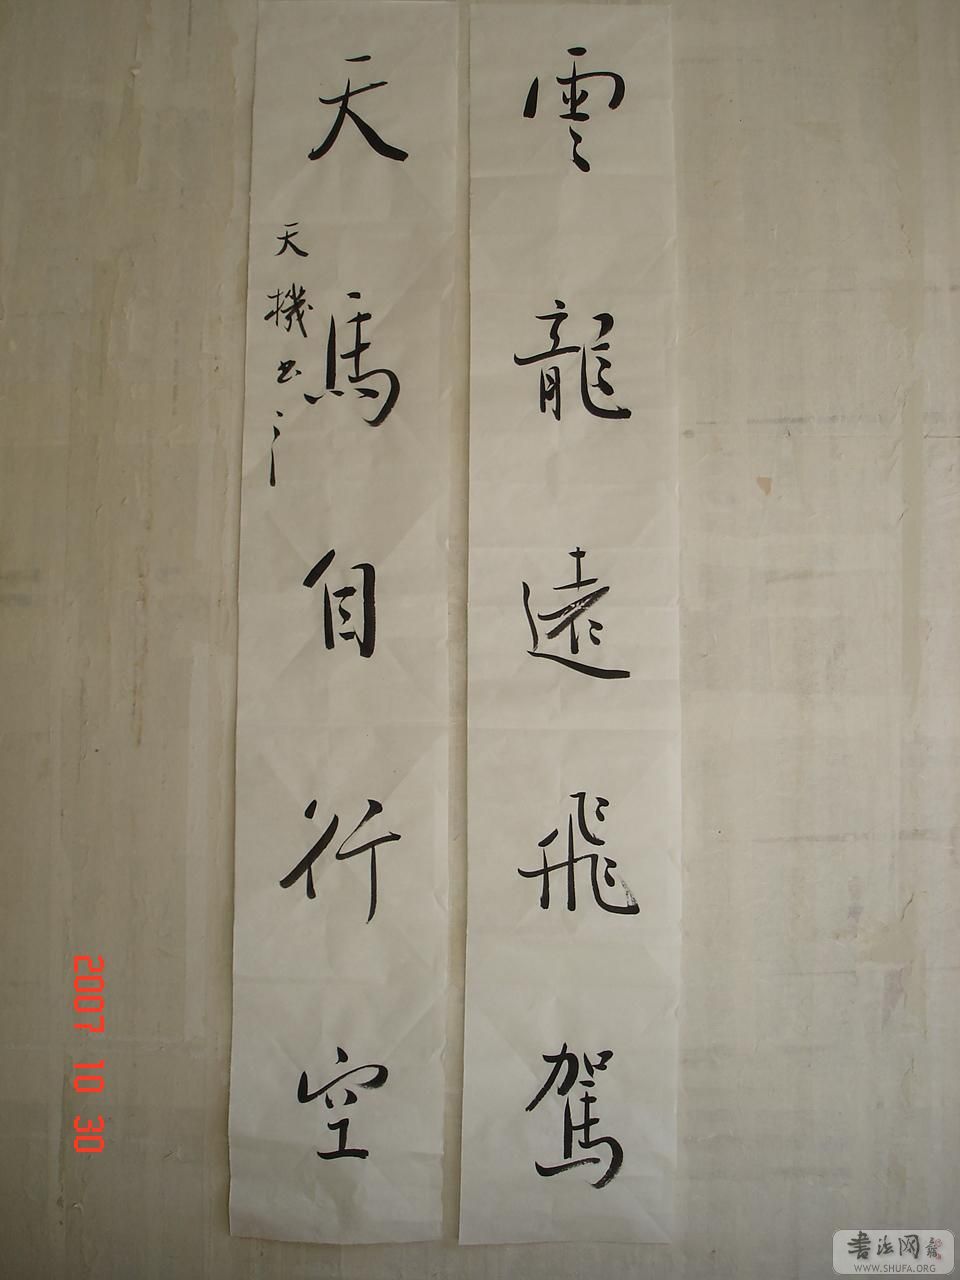 雲龍遠飛駕
天馬自行空
天機书之
2007 10 30
書法网
WWW.SHUFA.ORG